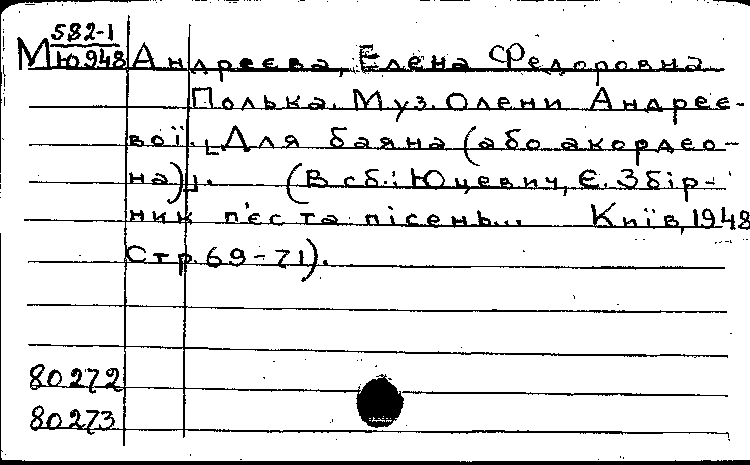 М 582-1
Ю948 Андреева, Елена Федоровна
Полька. Муз. Олени Андреє-
вої. [Для баяна (або акордео-
на)]. (В сб.: Юцевич, Є. Збір-
ник п'єс та пісень... Київ, 1948
Стр. 69-71).
80272
80273